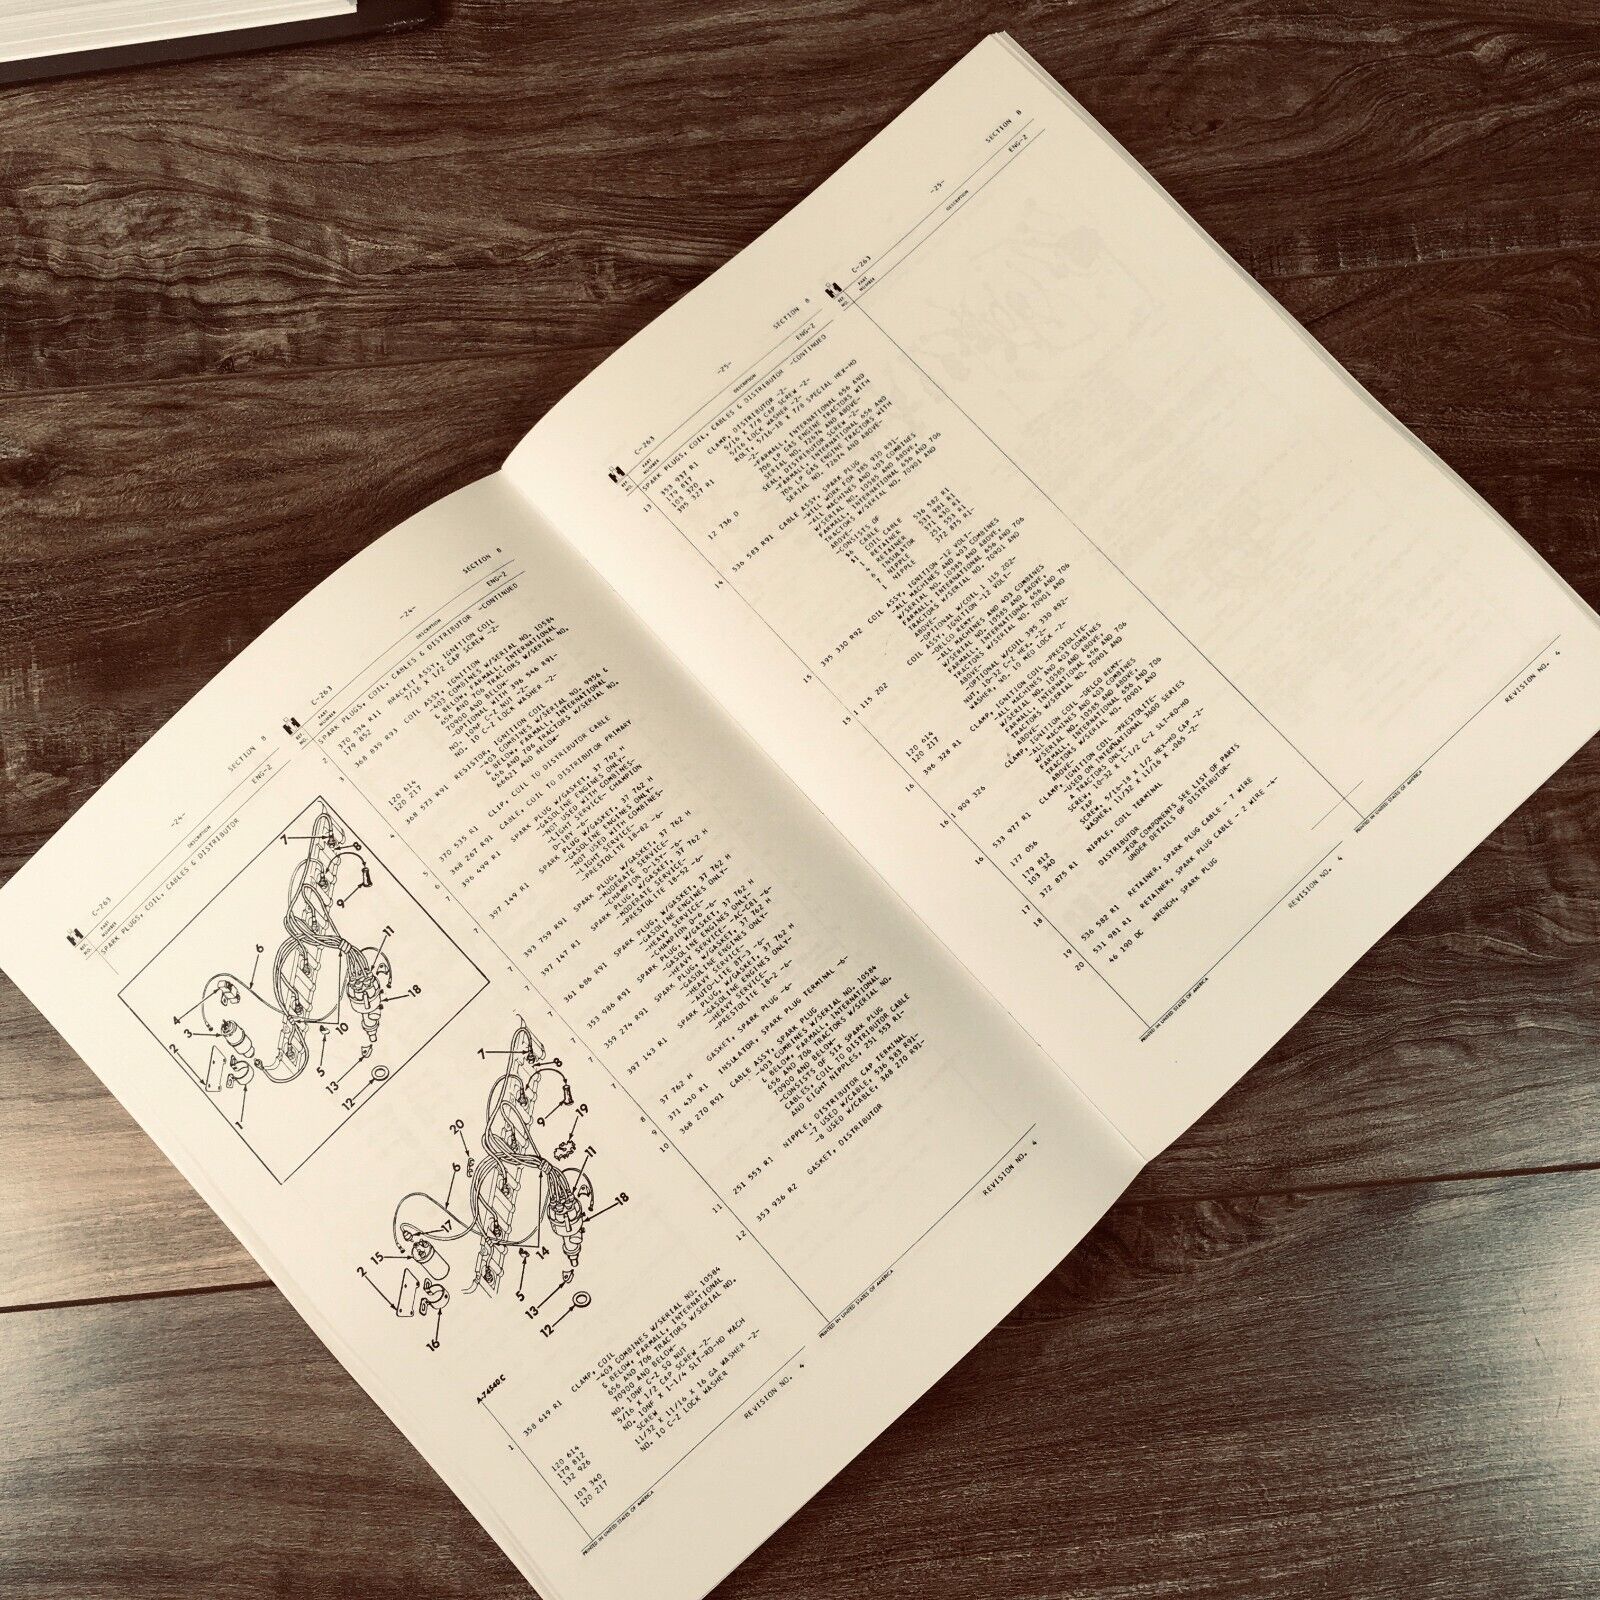 C-263 -24- SECTION B
REF. NO. PART NUMBER DESCRIPTION ENG-2
SPARK PLUGS, COIL, CABLES & DISTRIBUTOR
7
8
9
6
11
4
3
2
18
10
5
13
12
1
7
8
9
19
20
6
11
18
17
15
2
14
5
13
12
16
A-74540C
1 358 619 R1 CLAMP, COIL
-403 COMBINES W/SERIAL NO. 10584
& BELOW, FARMALL, INTERNATIONAL
656 AND 706 TRACTORS W/SERIAL NO.
70900 AND BELOW-
120 614 NO. 10NF C-Z SQ NUT
179 812 5/16 X 1/2 CAP SCREW -2-
132 926 NO. 10NF X 1-1/4 SLT-RD-HD MACH
SCREW
103 340 11/32 X 11/16 X 16 GA WASHER -2-
120 217 NO. 10 C-Z LOCK WASHER
PRINTED IN UNITED STATES OF AMERICA REVISION NO. 4
C-263 -24- SECTION B
REF. NO. PART NUMBER DESCRIPTION ENG-2
SPARK PLUGS, COIL, CABLES & DISTRIBUTOR -CONTINUED
2 370 594 R11 BRACKET ASSY, IGNITION COIL
179 852 7/16 X 1/2 CAP SCREW -2-
3 368 839 R93 COIL ASSY, IGNITION
-403 COMBINES W/SERIAL NO. 10584
& BELOW, FARMALL, INTERNATIONAL
656 AND 706 TRACTORS W/SERIAL NO.
70900 AND BELOW-
-OPTIONAL WITH 396 546 R91-
120 614 NO. 10NF C-Z NUT -2-
120 217 NO. 10 C-Z LOCK WASHER -2-
4 368 573 R91 RESISTOR, IGNITION COIL
-403 COMBINES W/SERIAL NO. 9956
& BELOW, FARMALL, INTERNATIONAL
656 AND 706 TRACTORS W/SERIAL NO.
46621 AND BELOW-
5 370 535 R1 CLIP, COIL TO DISTRIBUTOR CABLE
6 368 267 R91 CABLE, COIL TO DISTRIBUTOR PRIMARY
7 396 499 R1 SPARK PLUG W/GASKET, 37 762 H
-GASOLINE ENGINES ONLY-
-NOT USED WITH COMBINES-
-LIGHT SERVICE- CHAMPION
7 397 149 R1 SPARK PLUG W/GASKET, 37 762 H
-GASOLINE ENGINES ONLY-
-NOT USED WITH COMBINES-
-LIGHT SERVICE-
-PRESTOLITE 18-82 -6-
7 393 759 R91 SPARK PLUG, W/GASKET, 37 762 H
-MODERATE SERVICE-
7 397 147 R1 SPARK PLUG, W/GASKET, 37 762 H
-MODERATE SERVICE-
-PRESTOLITE 18-52 -6-
7 361 686 R91 SPARK PLUG, W/GASKET, 37 762 H
-GASOLINE ENGINES ONLY-
-HEAVY SERVICE-
-CHAMPION D-6 -6-
7 353 986 R91 SPARK PLUG, W/GASKET, 37 762 H
-GASOLINE ENGINES ONLY-
-HEAVY SERVICE-
7 359 274 R91 SPARK PLUG, W/GASKET, 37 762 H
-GASOLINE ENGINES ONLY-
-HEAVY SERVICE-
-AUTO-LITE BT-3 -6-
7 397 143 R1 SPARK PLUG, W/GASKET, 37 762 H
-GASOLINE ENGINES ONLY-
-HEAVY SERVICE-
-PRESTOLITE 18-2 -6-
8 37 762 H GASKET, SPARK PLUG -6-
9 371 430 R1 INSULATOR, SPARK PLUG TERMINAL -6-
10 368 270 R91 CABLE ASSY, SPARK PLUG
-403 COMBINES W/SERIAL NO. 10584
& BELOW, FARMALL, INTERNATIONAL
656 AND 706 TRACTORS W/SERIAL NO.
70900 AND BELOW-
-CONSISTS OF SIX SPARK PLUG
CABLES, COIL TO DISTRIBUTOR CABLE
AND EIGHT NIPPLES, 251 553 R1-
11 251 553 R1 NIPPLE, DISTRIBUTOR CAP TERMINAL
-7 USED W/CABLE, 536 583 R91-
-8 USED W/CABLE, 368 270 R91-
12 353 936 R2 GASKET, DISTRIBUTOR
PRINTED IN UNITED STATES OF AMERICA REVISION NO. 4
C-263 -25- SECTION B
REF. NO. PART NUMBER DESCRIPTION ENG-2
SPARK PLUGS, COIL, CABLES & DISTRIBUTOR -CONTINUED
13 353 937 R1 CLAMP, DISTRIBUTOR -2-
179 817 5/16 X 7/8 CAP SCREW -2-
103 320 5/16 LOCK WASHER -2-
395 327 R1 BOLT, 5/16-18 X 7/8 SPECIAL HEX-HD
-2-
-FARMALL, INTERNATIONAL 656 AND
706 LP GAS ENGINE TRACTORS WITH
SERIAL NO. 72674 AND ABOVE-
12 736 D SEAL, DISTRIBUTOR SCREW -2-
-FARMALL, INTERNATIONAL 656 AND
706 LP GAS ENGINE TRACTORS WITH
SERIAL NO. 72674 AND ABOVE-
14 536 583 R91 CABLE ASSY, SPARK PLUG
-WILL WORK FOR 385 930 R91-
-ALL MACHINES AND 403 COMBINES
W/SERIAL NO. 10585 AND ABOVE,
FARMALL, INTERNATIONAL 656 AND 706
TRACTORS W/SERIAL NO. 70901 AND
ABOVE-
CONSISTS OF
1 COIL CABLE 536 582 R1
RETAINER 531 981 R1
INSULATOR 371 430 R1
NIPPLE 251 553 R1
NIPPLE 372 875 R1-
15 395 330 R92 COIL ASSY, IGNITION -12 VOLT-
-ALL MACHINES AND 403 COMBINES
W/SERIAL NO. 10585 AND ABOVE,
FARMALL, INTERNATIONAL 656 AND 706
TRACTORS W/SERIAL NO. 70901 AND
ABOVE-
-OPTIONAL W/COIL 1 115 202-
15 1 115 202 COIL ASSY, IGNITION -12 VOLT-
-DELCO REMY-
-ALL MACHINES AND 403 COMBINES
W/SERIAL NO. 10585 AND ABOVE,
FARMALL, INTERNATIONAL 656 AND 706
TRACTORS W/SERIAL NO. 70901 AND
-OPTIONAL W/COIL 395 330 R92-
120 614 NUT, 10-32 C-Z HEX -2-
120 217 WASHER, NO. 10 MED LOCK -2-
16 396 328 R1 CLAMP, IGNITION COIL -PRESTOLITE-
-ALL MACHINES AND 403 COMBINES
W/SERIAL NO. 10585 AND ABOVE,
FARMALL, INTERNATIONAL 656 AND 706
TRACTORS W/SERIAL NO. 70901 AND
ABOVE-
16 1 909 326 CLAMP, IGNITION COIL -DELCO REMY-
-ALL MACHINES AND 403 COMBINES
W/SERIAL NO. 10585 AND ABOVE
FARMALL, INTERNATIONAL 656 AND 706
TRACTORS W/SERIAL NO. 70901 AND
ABOVE-
16 533 977 R1 CLAMP, IGNITION COIL -PRESTOLITE-
-USED ON INTERNATIONAL 3600 SERIES
A TRACTORS ONLY-
127 056 SCREW, 10-32 X 1-1/2 C-Z SLT-RD-HD
CAP
179 812 SCREW, 5/16-18 X 1/2 HEX-HD CAP -2-
103 340 WASHER, 11/32 X 11/16 X .065 -2-
17 372 875 R1 NIPPLE, COIL TERMINAL
18 DISTRIBUTOR
-FOR COMPONENTS SEE LIST OF PARTS
UNDER DETAILS OF DISTRIBUTOR-
19 536 582 R1 RETAINER, SPARK PLUG CABLE - 7 WIRE
20 531 981 R1 RETAINER, SPARK PLUG CABLE - 2 WIRE -4-
46 190 DC WRENCH, SPARK PLUG
PRINTED IN UNITED STATES OF AMERICA REVISION NO. 4
C-263 -25- SECTION B
REF. NO. PART NUMBER DESCRIPTION ENG-2
PRINTED IN UNITED STATES OF AMERICA REVISION NO. 4